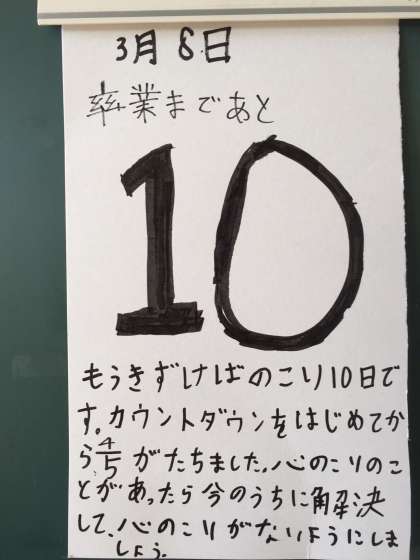 3月8日
卒業まであと
10
もうきずけばのこり10日で
す。カウントダウンをはじめてか
ら4/5がたちました。心のこりのこ
とがあったら今のうちに解決
して、心のこりがないようにしま
しょう。